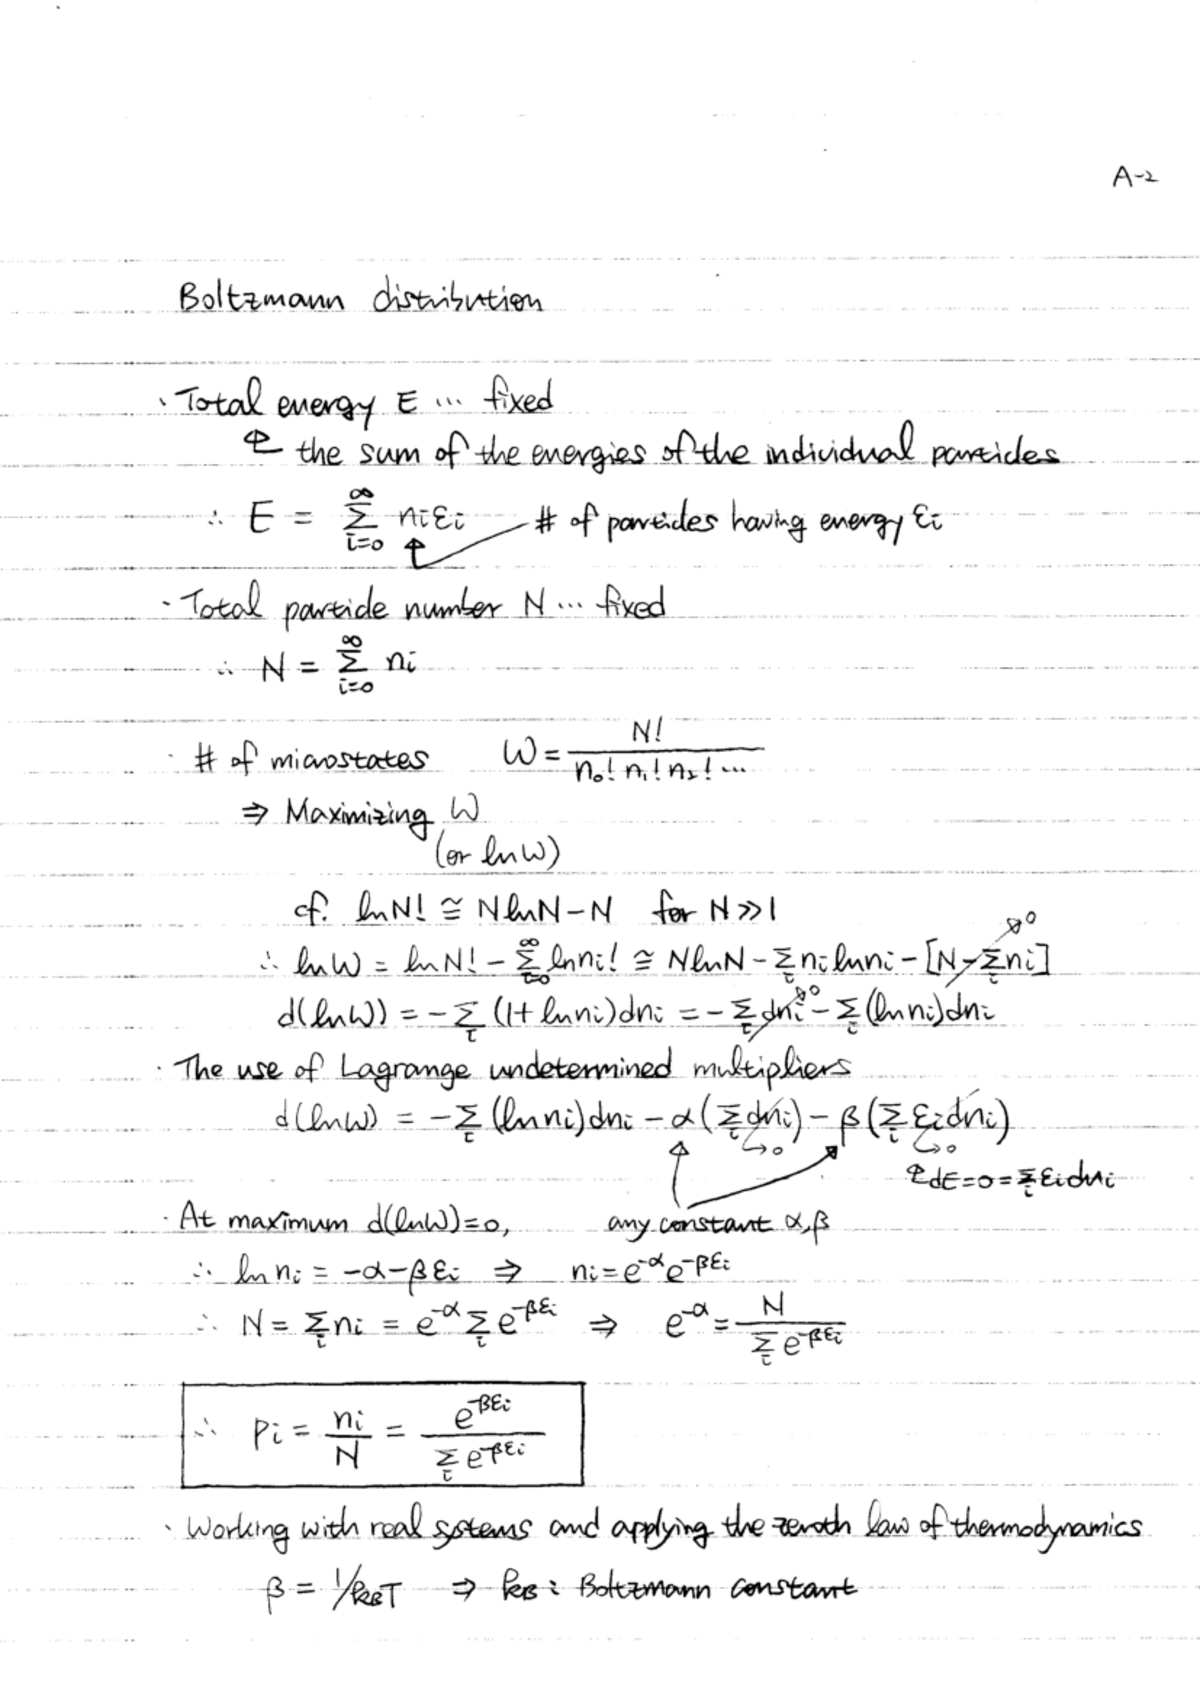 A-2
Boltzmann distribution
· Total energy E ... fixed
the sum of the energies of the individual particles
∴ E = Σ_{i=0}^{∞} niεi # of particles having energy εi
· Total particle number N ... fixed
∴ N = Σ_{i=0}^{∞} ni
· # of microstates W = N! / n₀! n₁! n₂! ...
⇒ Maximizing W
(or lnW)
cf. lnN! ≅ NlnN - N for N ≫ 1
∴ lnW = lnN! - Σ_{i=0}^{∞} lnni! ≅ NlnN - Σ_i ni lnni - [N - Σ_i ni] → 0
d(lnW) = - Σ_i (1 + lnni)dni = - Σ_i dni → 0 - Σ_i (lnni)dni
· The use of Lagrange undetermined multipliers
d(lnW) = - Σ_i (lnni)dni - α(Σ_i dni) - β(Σ_i εidni)
→ 0 → 0
dE = 0 = Σ_i εidni
· At maximum d(lnW) = 0, any constant α, β
∴ ln ni = -α - βεi ⇒ ni = e^{-α}e^{-βεi}
∴ N = Σ_i ni = e^{-α} Σ_i e^{-βεi} ⇒ e^{-α} = N / Σ_i e^{-βεi}
∴ Pi = ni / N = e^{-βεi} / Σ_i e^{-βεi}
· Working with real systems and applying the zeroth law of thermodynamics
β = 1/kBT ⇒ kB : Boltzmann constant